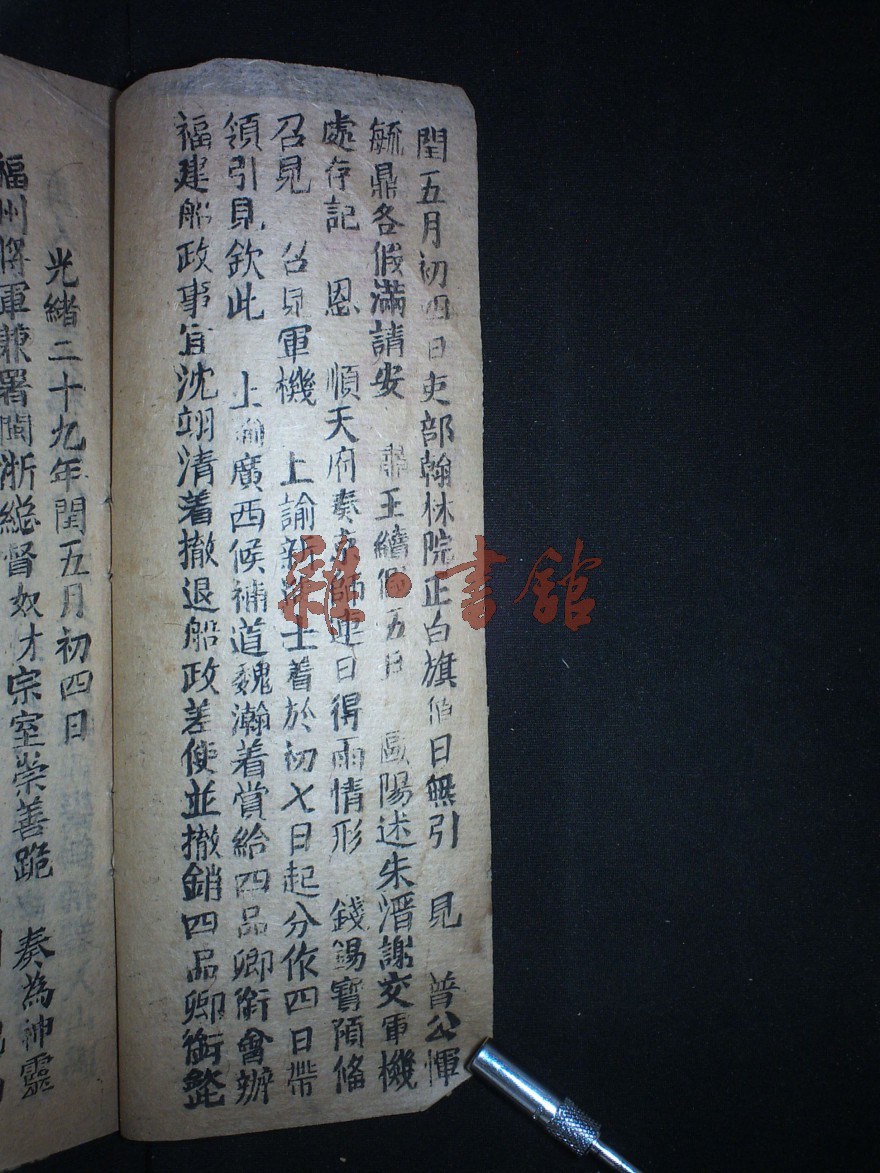 閏五月初四日吏部翰林院正白旗値日無引 見 普公惲
毓鼎各假滿請安 肅王續假五日 歐陽述朱湣謝交軍機
處存記 恩 順天府奏京師連日得雨情形 錢錫寶預備
召見 召見軍機 上諭新進士着於初七日起分作四日帶
領引見欽此 上諭廣西候補道魏瀚着賞給四品卿銜會辦
福建船政事宜沈翊清着撤退船政差使並撤銷四品卿銜欽此
光緒二十九年閏五月初四日
福州將軍兼署閩浙總督奴才宗室崇善跪 奏為神靈
雜·書館